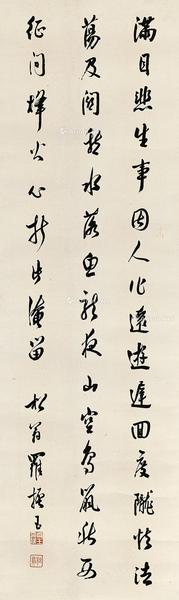 滿目悲生事因人作遠遊遲回度隴怯浩
蕩及關愁水落魚龍夜山空鳥鼠秋西
征問烽火心折此淹留 松翁羅振玉